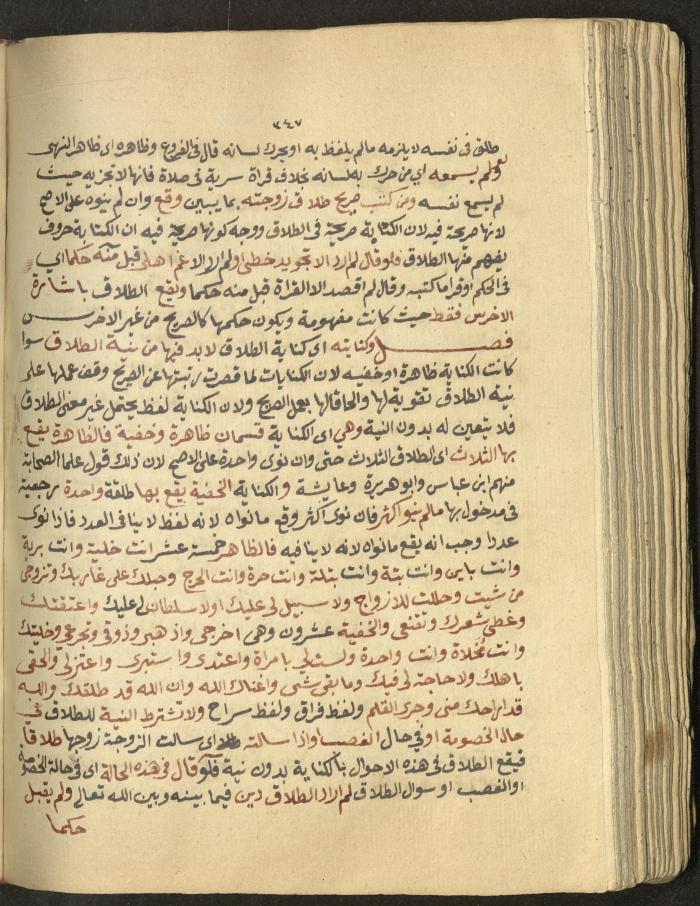 ٣٤٧
طلق في نفسه لا يلزمه ما لم يلفظ به او يحرك لسانه قال في الفروع وظاهره اى ظاهر النهى
ولو لم يسمعه اي من حرك به لسانه بخلاف قراة سرية في صلاة فانها لا تجزيه حيث
لم يسمع نفسه ومن كتب صريح طلاق زوجته بما يبين وقع وان لم ينوه على الاصح
لانها صريحة فيه لان الكتابة صريحة في الطلاق ووجه كونها صريحة فيه ان الكتابة حروف
يفهم منها الطلاق فلو قال لم ارد الا تجويد خطى او لم ارد الا غم اهلى قبل منه حكما اي
في الحكم او قرا ما كتبه وقال لم اقصد الا القراة قبل منه حكما ويقع الطلاق باشارة
الاخرس فقط حيث كانت مفهومة ويكون حكمها كالصريح من غير الاخرس
فصل وكنايته اى كناية الطلاق لا بد فيها من نية الطلاق سوا
كانت الكناية ظاهرة او خفيه لان الكنايات لما قصرت رتبتها عن الصريح وقف عملها على
نية الطلاق تقوية لها والحاقا لها بعمل الصريح ولان الكناية لفظ يحتمل غير معنى الطلاق
فلا يتعين له بدون النية وهي اى الكناية قسمان ظاهرة وخفية فالظاهرة يقع
بها الثلاث اى الطلاق الثلاث حتى وان نوى واحدة على الاصح لان ذلك قول علما الصحابة
منهم ابن عباس وابو هريرة وعايشة والكناية الخفية يقع بها طلقة واحدة رجعية
في مدخول بها ما لم ينو اكثر فان نوى اكثر وقع ما نواه لانه لفظ لا ينافى العدد فاذا نوى
عددا وجب انه يقع ما نواه لانه لا ينافيه فالظاهر خمسة عشر انت خلية وانت برية
وانت باين وانت بتة وانت بتلة وانت حرة وانت الحرج وحبلك على غاربك وتزوجى
من شيت وحللت للازواج ولا سبيل لى عليك او لا سلطان لى عليك واعتقتك
وغطى شعرك وتقنعى والخفية عشرون وهى اخرجى واذهبى وذوقى وتجرعى وخليتك
وانت مخلاة وانت واحدة ولست لي بامراة واعتدى واستبرى واعتزلى والحقى
باهلك ولا حاجة لى فيك وما بقى شى واغناك الله وان الله قد طلقك والله
قد اراحك منى وجرى القلم ولفظ فراق ولفظ سراح ولا تشترط النية للطلاق في
حال الخصومة او في حال الغصب واذا سالته اى سالت الزوجة زوجها طلاقا
فيقع الطلاق فى هذه الاحوال بالكناية بدون نية فلو قال في هذه الحالة اى فى حالة الخصومة
او الغصب او سوال الطلاق لم ارد الطلاق دين فيما بينه وبين الله تعالى ولم يقبل
حكما